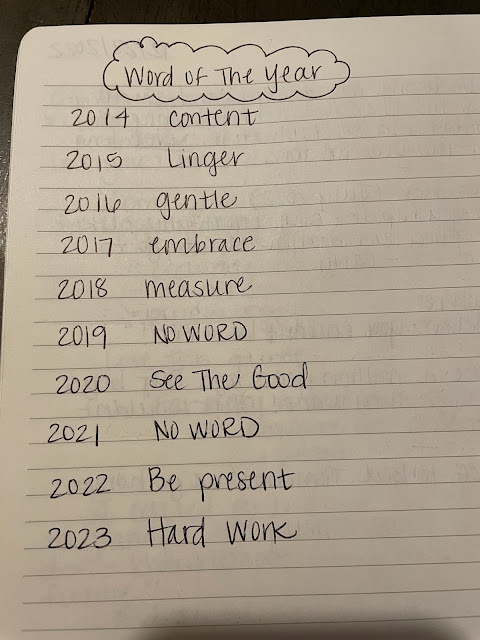 Word of The Year
2014 content
2015 Linger
2016 gentle
2017 embrace
2018 measure
2019 NO WORD
2020 See The Good
2021 NO WORD
2022 Be present
2023 Hard Work